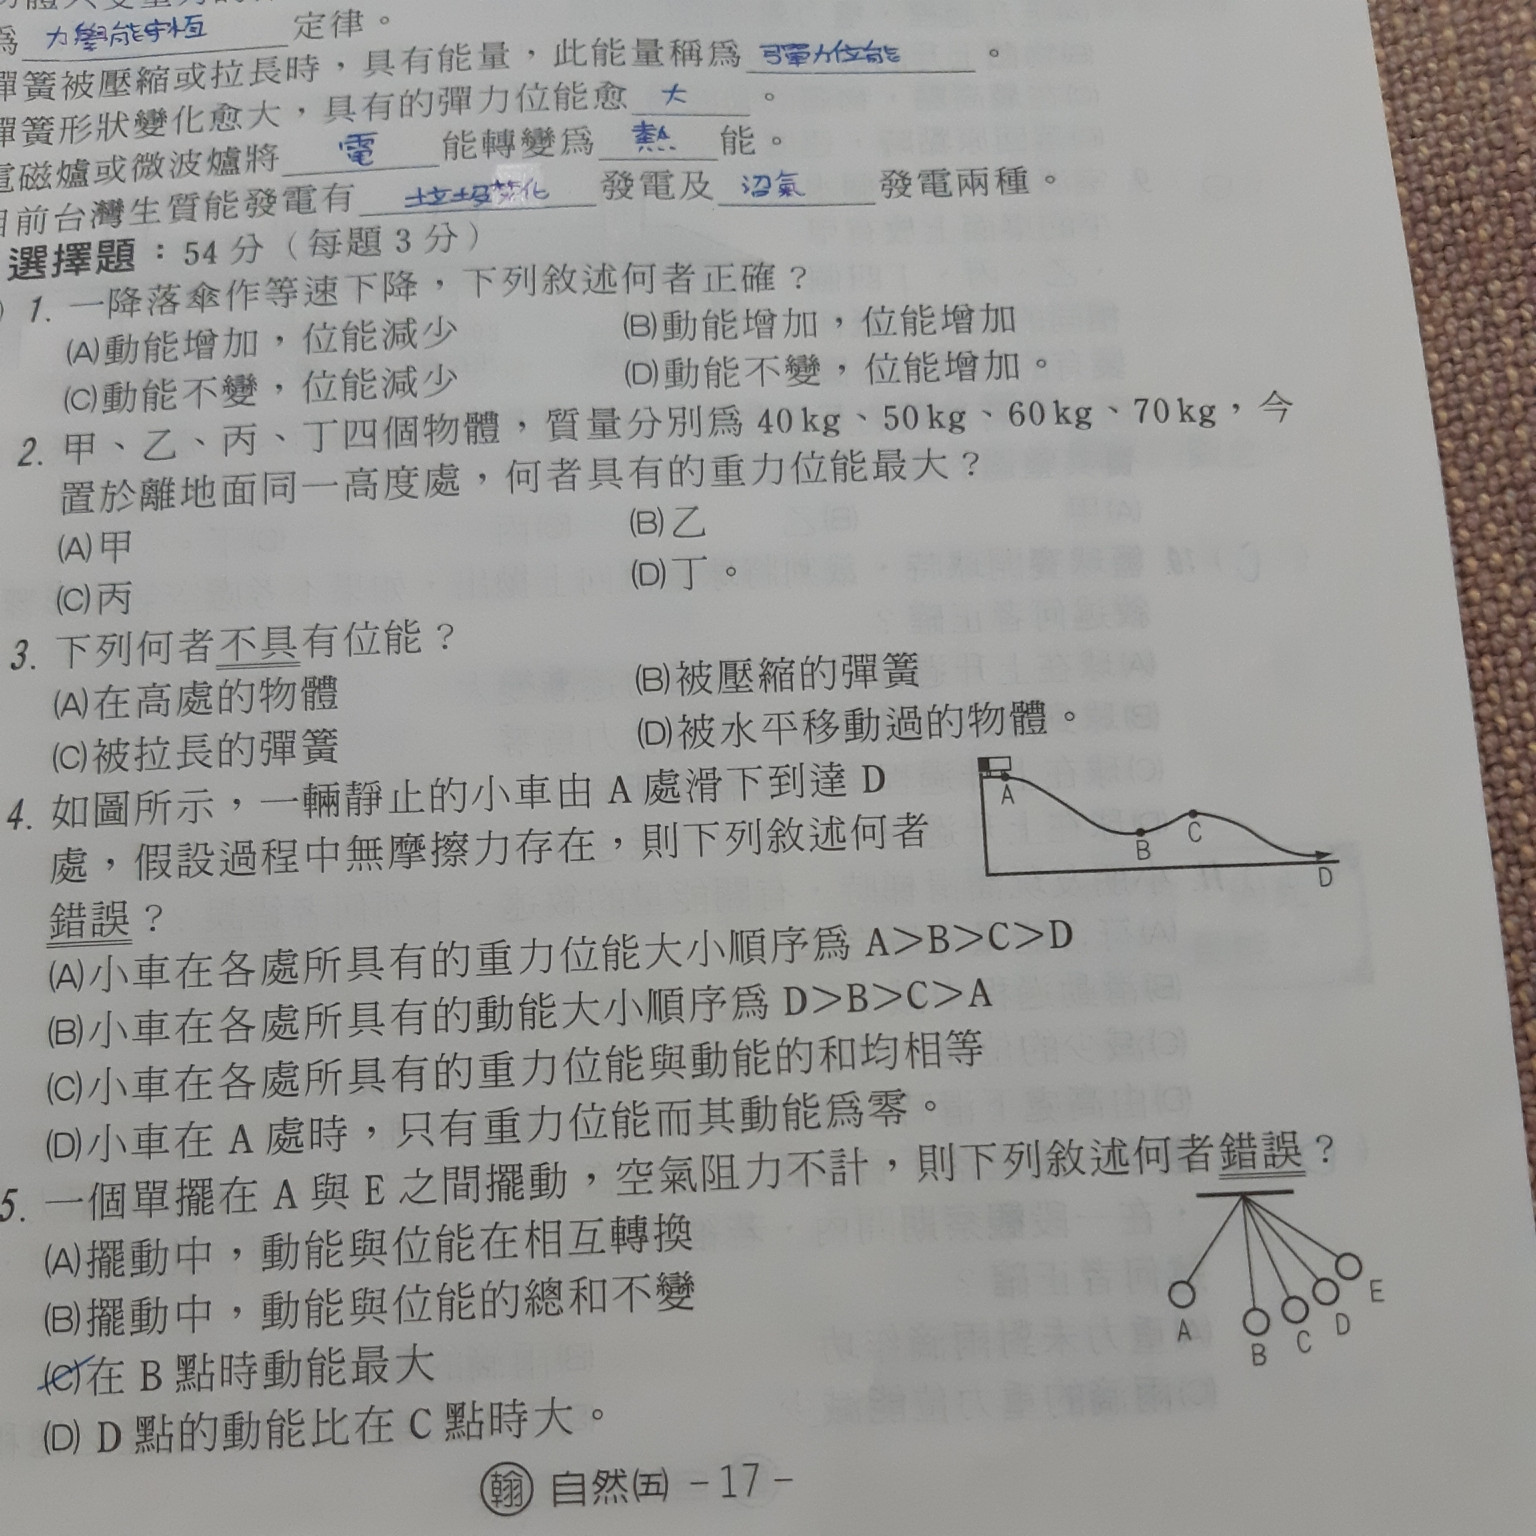 為 力學能守恆 定律。
彈簧被壓縮或拉長時，具有能量，此能量稱為 彈力位能 。
彈簧形狀變化愈大，具有的彈力位能愈 大 。
電磁爐或微波爐將 電 能轉變為 熱 能。
目前台灣生質能發電有 垃圾焚化 發電及 沼氣 發電兩種。
選擇題：54 分（每題 3 分）
) 1. 一降落傘作等速下降，下列敘述何者正確？
(A)動能增加，位能減少 (B)動能增加，位能增加
(C)動能不變，位能減少 (D)動能不變，位能增加。
2. 甲、乙、丙、丁四個物體，質量分別為 40 kg、50 kg、60 kg、70 kg，今
置於離地面同一高度處，何者具有的重力位能最大？
(A)甲 (B)乙
(C)丙 (D)丁。
3. 下列何者不具有位能？
(A)在高處的物體 (B)被壓縮的彈簧
(C)被拉長的彈簧 (D)被水平移動過的物體。
4. 如圖所示，一輛靜止的小車由 A 處滑下到達 D
處，假設過程中無摩擦力存在，則下列敘述何者
錯誤？
A
B
C
D
(A)小車在各處所具有的重力位能大小順序為 A＞B＞C＞D
(B)小車在各處所具有的動能大小順序為 D＞B＞C＞A
(C)小車在各處所具有的重力位能與動能的和均相等
(D)小車在 A 處時，只有重力位能而其動能為零。
5. 一個單擺在 A 與 E 之間擺動，空氣阻力不計，則下列敘述何者錯誤？
(A)擺動中，動能與位能在相互轉換
(B)擺動中，動能與位能的總和不變
(C)在 B 點時動能最大
(D) D 點的動能比在 C 點時大。
A
B
C
D
E
翰 自然(五) －17－